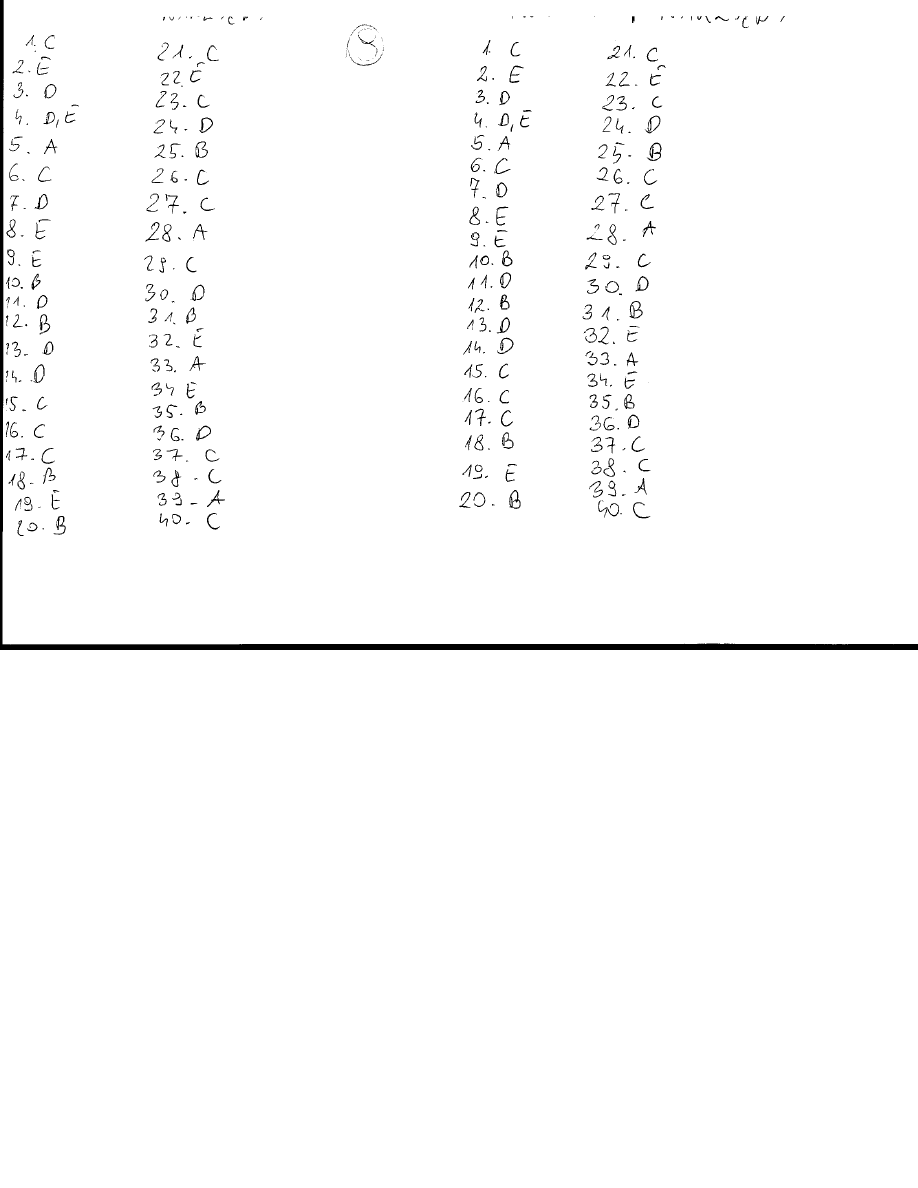 1. C
2. E
3. D
4. D, E
5. A
6. C
7. D
8. E
9. E
10. B
11. D
12. B
13. D
14. D
15. C
16. C
17. C
18. B
19. E
20. B
21. C
22. E
23. C
24. D
25. B
26. C
27. C
28. A
29. C
30. D
31. B
32. E
33. A
34 E
35. B
36. D
37. C
38. C
39 - A
40. C
9
1. C
2. E
3. D
4. D, E
5. A
6. C
7. D
8. E
9. E
10. B
11. D
12. B
13. D
14. D
15. C
16. C
17. C
18. B
19. E
20. B
21. C
22. E
23. C
24. D
25. B
26. C
27. C
28. A
29. C
30. D
31. B
32. E
33. A
34. E
35. B
36. D
37. C
38. C
39. A
40. C